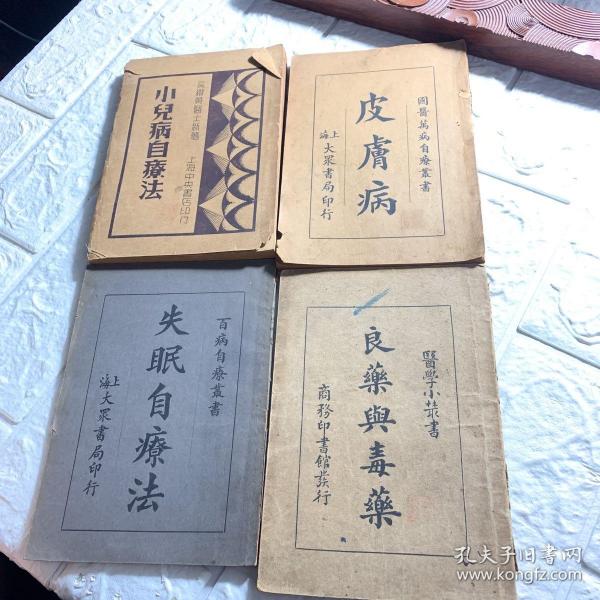 小兒病自療法
上海中央書店印行
國醫萬病自療叢書
皮膚病
上海大眾書局印行
百病自療叢書
失眠自療法
上海大眾書局印行
醫學小叢書
良藥與毒藥
商務印書館發行
孔夫子旧书网
www.kongfz.com